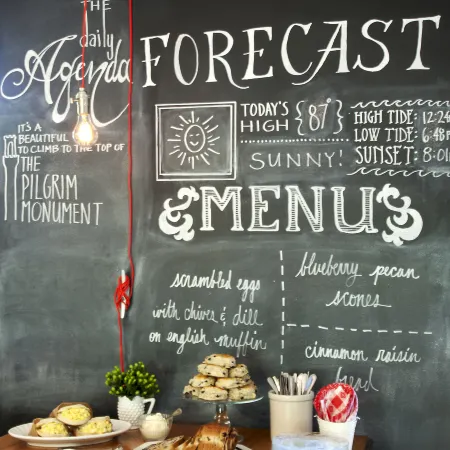 THE
daily
Agenda
IT'S A
BEAUTIFUL
TO CLIMB TO THE TOP OF
THE
PILGRIM
MONUMENT
FORECAST
TODAY'S
HIGH
87°
SUNNY!
HIGH TIDE: 12:24
LOW TIDE: 6:48
SUNSET: 8:01
MENU
scrambled eggs
with chives & dill
on english muffin
blueberry pecan
scones
cinnamon raisin
bread